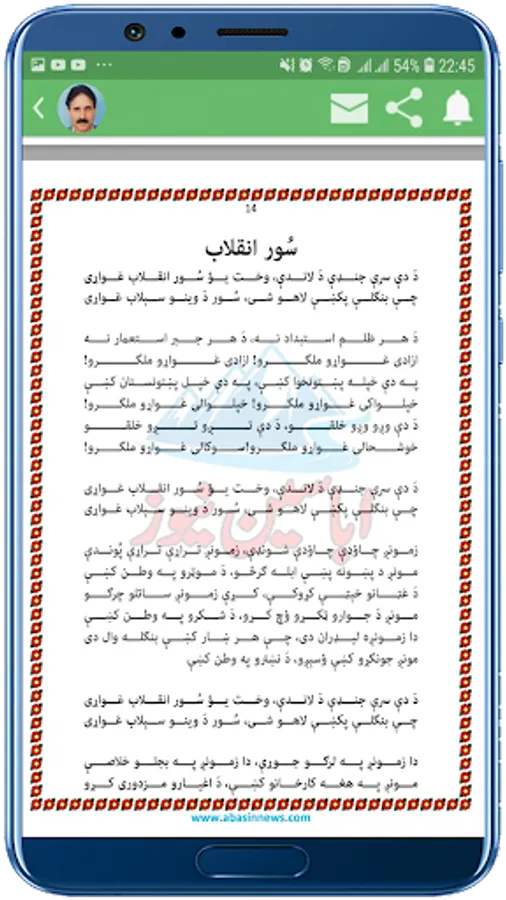 54% 22:45
14
سُور انقلاب
دَ دې سرې جنډې دَ لاندې، وخت يؤ سُور انقلاب غواړى
چې بنګلې پکښې لاهو شى، سُور دَ وينو سېلاب غواړى
دَ هر ظلم استبداد نه، دَ هر جبر استعمار نه
ازادى غواړو ملګرو! ازادى غواړو ملګرو!
په دې خپله پښتونخوا کښې، په دې خپل پښتونستان کښې
خپلواکى غواړو ملګرو! خپلوالى غواړو ملګرو!
دَ دې وږو وږو خلقو، دَ دې تږو تږو خلقو
خوشحالى غواړو ملګرو! سوکالى غواړو ملګرو!
دَ دې سرې جنډې دَ لاندې، وخت يؤ سُور انقلاب غواړى
چې بنګلې پکښې لاهو شى، سُور دَ وينو سېلاب غواړى
اباسين نيوز
زمونږ چاؤدې چاؤدې شونډې، زمونږ تراړې تراړې پُوندې
مونږ د پښونه پښې ابله ګرځو، دَ موټرو په وطن کښې
دَ غټانو خېټې کړوکې، کړې زمونږ ساتلو چرګو
مونږ دَ جوارو ټکرو وُچ کړو، دَ شکرو په وطن کښې
دا زمونږه ليډران دى، چې هر ښار کښې بنګله وال دى
مونږ جونګړو کښې وُسېږو، دَ نښترو په وطن کښې
دَ دې سرې جنډې دَ لاندې، وخت يؤ سُور انقلاب غواړى
چې بنګلې پکښې لاهو شى، سُور دَ وينو سېلاب غواړى
دا زمونږ په لرګو جوړې، دا زمونږ په بجلو خلاصې
مونږ په هغه کارخانو کښې، دَ اغيارو مزدورى کړو
www.abasinnews.com